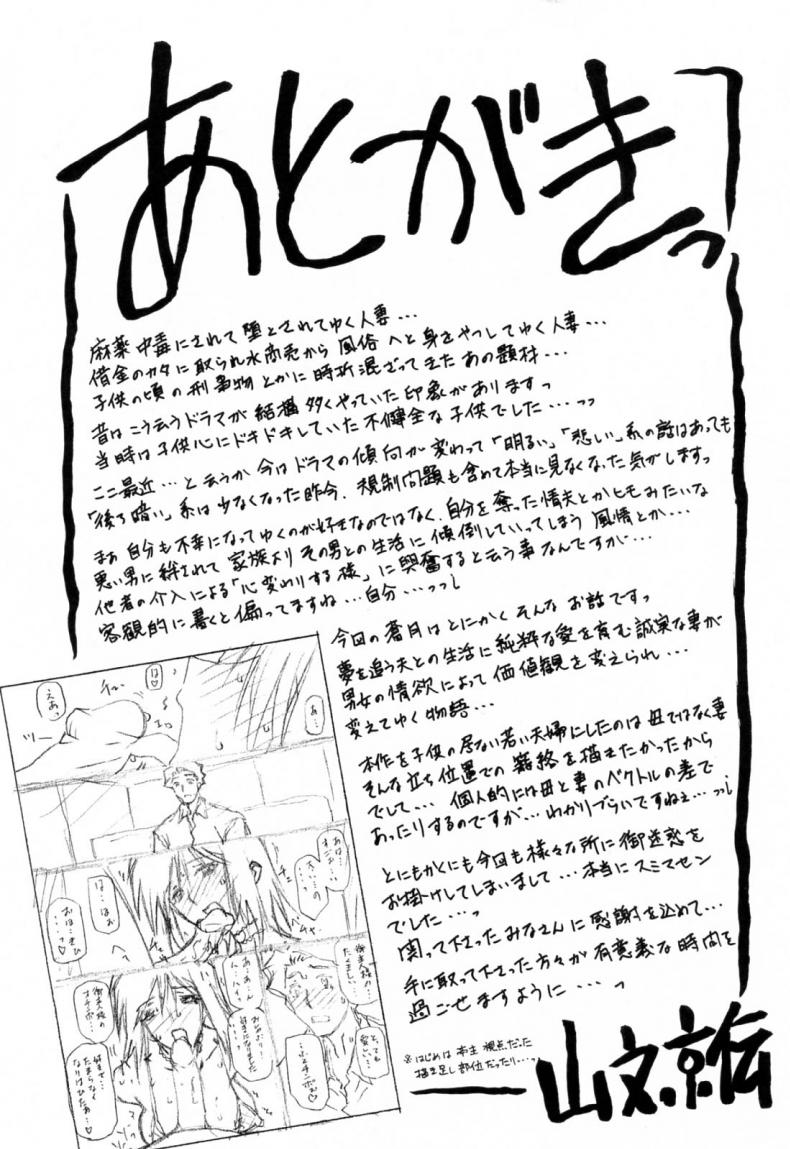 あとがきっ
麻薬中毒にされて堕とされてゆく人妻…
借金のカタに取られ水商売から風俗へと身をやつしてゆく人妻…
子供の頃の刑事物とかに時折混ざってきたあの題材…
昔はこう云うドラマが結構多くやっていた印象がありますっ
当時は子供心にドキドキしていた不健全な子供でした…っっ
ここ最近…と云うか今はドラマの傾向が変わって「明るい」「悲しい」系の話はあっても
「後ろ暗い」系は少なくなった昨今、規制問題も含めて本当に見なくなった気がしますっ
まぁ自分も不幸になってゆくのが好きなのではなく、自分を奪った情夫とかヒモみたいな
悪い男に絆されて家族よりその男との生活に傾倒していってしまう風情とか…
他者の介入による「心変わりする様」に興奮すると云う事なんですが…
客観的に書くと偏ってますね…自分…っっ
今回の蒼月はとにかくそんなお話ですっ
夢を追う夫との生活に純粋な愛を育む誠実な妻が
男女の情欲によって価値観を変えられ…
変えてゆく物語…
本作を子供の居ない若い夫婦にしたのは母ではなく妻
そんな立ち位置での籠絡を描きたかったから
でして…個人的には母と妻のベクトルの差で
あったりするのですが…わかりづらいですねぇ…っっ
とにもかくにも今回も様々な所に御迷惑を
お掛けしてしまいまして…本当にスミマセン
でした…っ
関って下さったみなさんに感謝を込めて…
手に取って下さった方々が有意義な時間を
過ごせますように…っ
※はじめは本主視点だった
描き足し部位だったり…っ
山文京伝